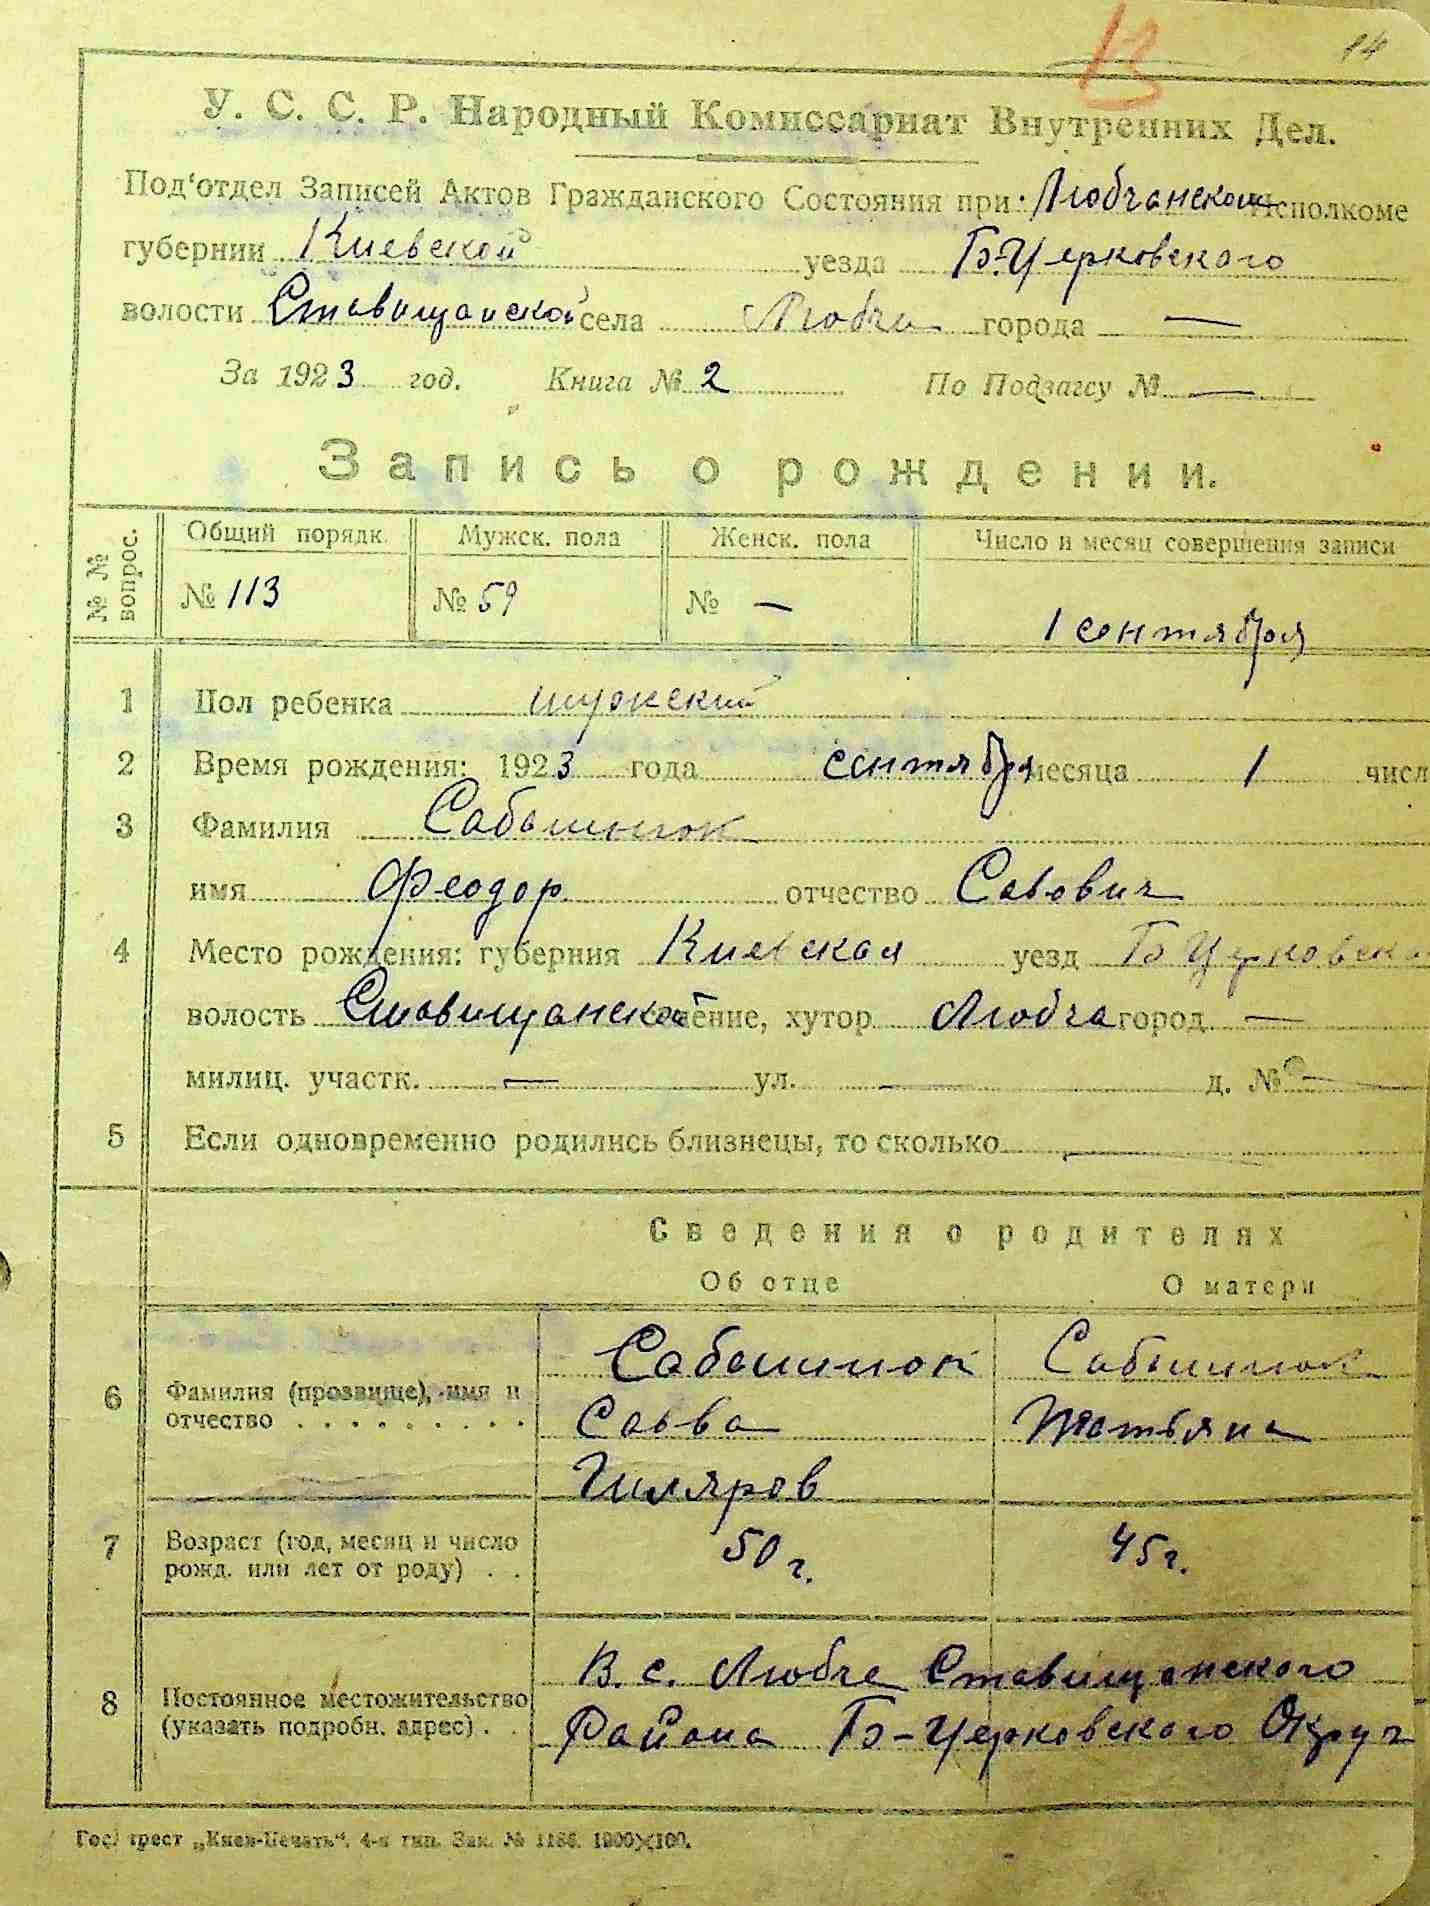 13
14
У. С. С. Р. Народный Комиссариат Внутренних Дел.
Под'отдел Записей Актов Гражданского Состояния при Любчанском Исполкоме
губернии Киевской уезда Б.-Церковского
волости Ставищанской села Любчи города —
За 1923 год. Книга № 2 По Подзагсу № —
Запись о рождении.
№ № вопрос.
Общий порядк. Мужск. пола Женск. пола Число и месяц совершения записи
№ 113 № 59 № — 1 сентября
1 Пол ребенка мужский
2 Время рождения: 1923 года сентября месяца 1 числ
3 Фамилия Сабашинюк
имя Феодор отчество Савович
4 Место рождения: губерния Киевская уезд Б Церковско
волость Ставищанской селение, хутор Любча город —
милиц. участк. — ул. — д. № —
5 Если одновременно родились близнецы, то сколько —
Сведения о родителях
Об отце О матери
6 Фамилия (прозвище), имя и отчество Сабашинюк Сабашинюк
Савва Татьяна
Гиляров
7 Возраст (год, месяц и число рожд. или лет от роду) 50 г. 45 г.
8 Постоянное местожительство (указать подробн. адрес) В. с. Любче Ставищанского
Района Б-Церковского Округ
Гос. трест „Киев-Печать". 4-я тип. Зак. № 1186. 1900×100.